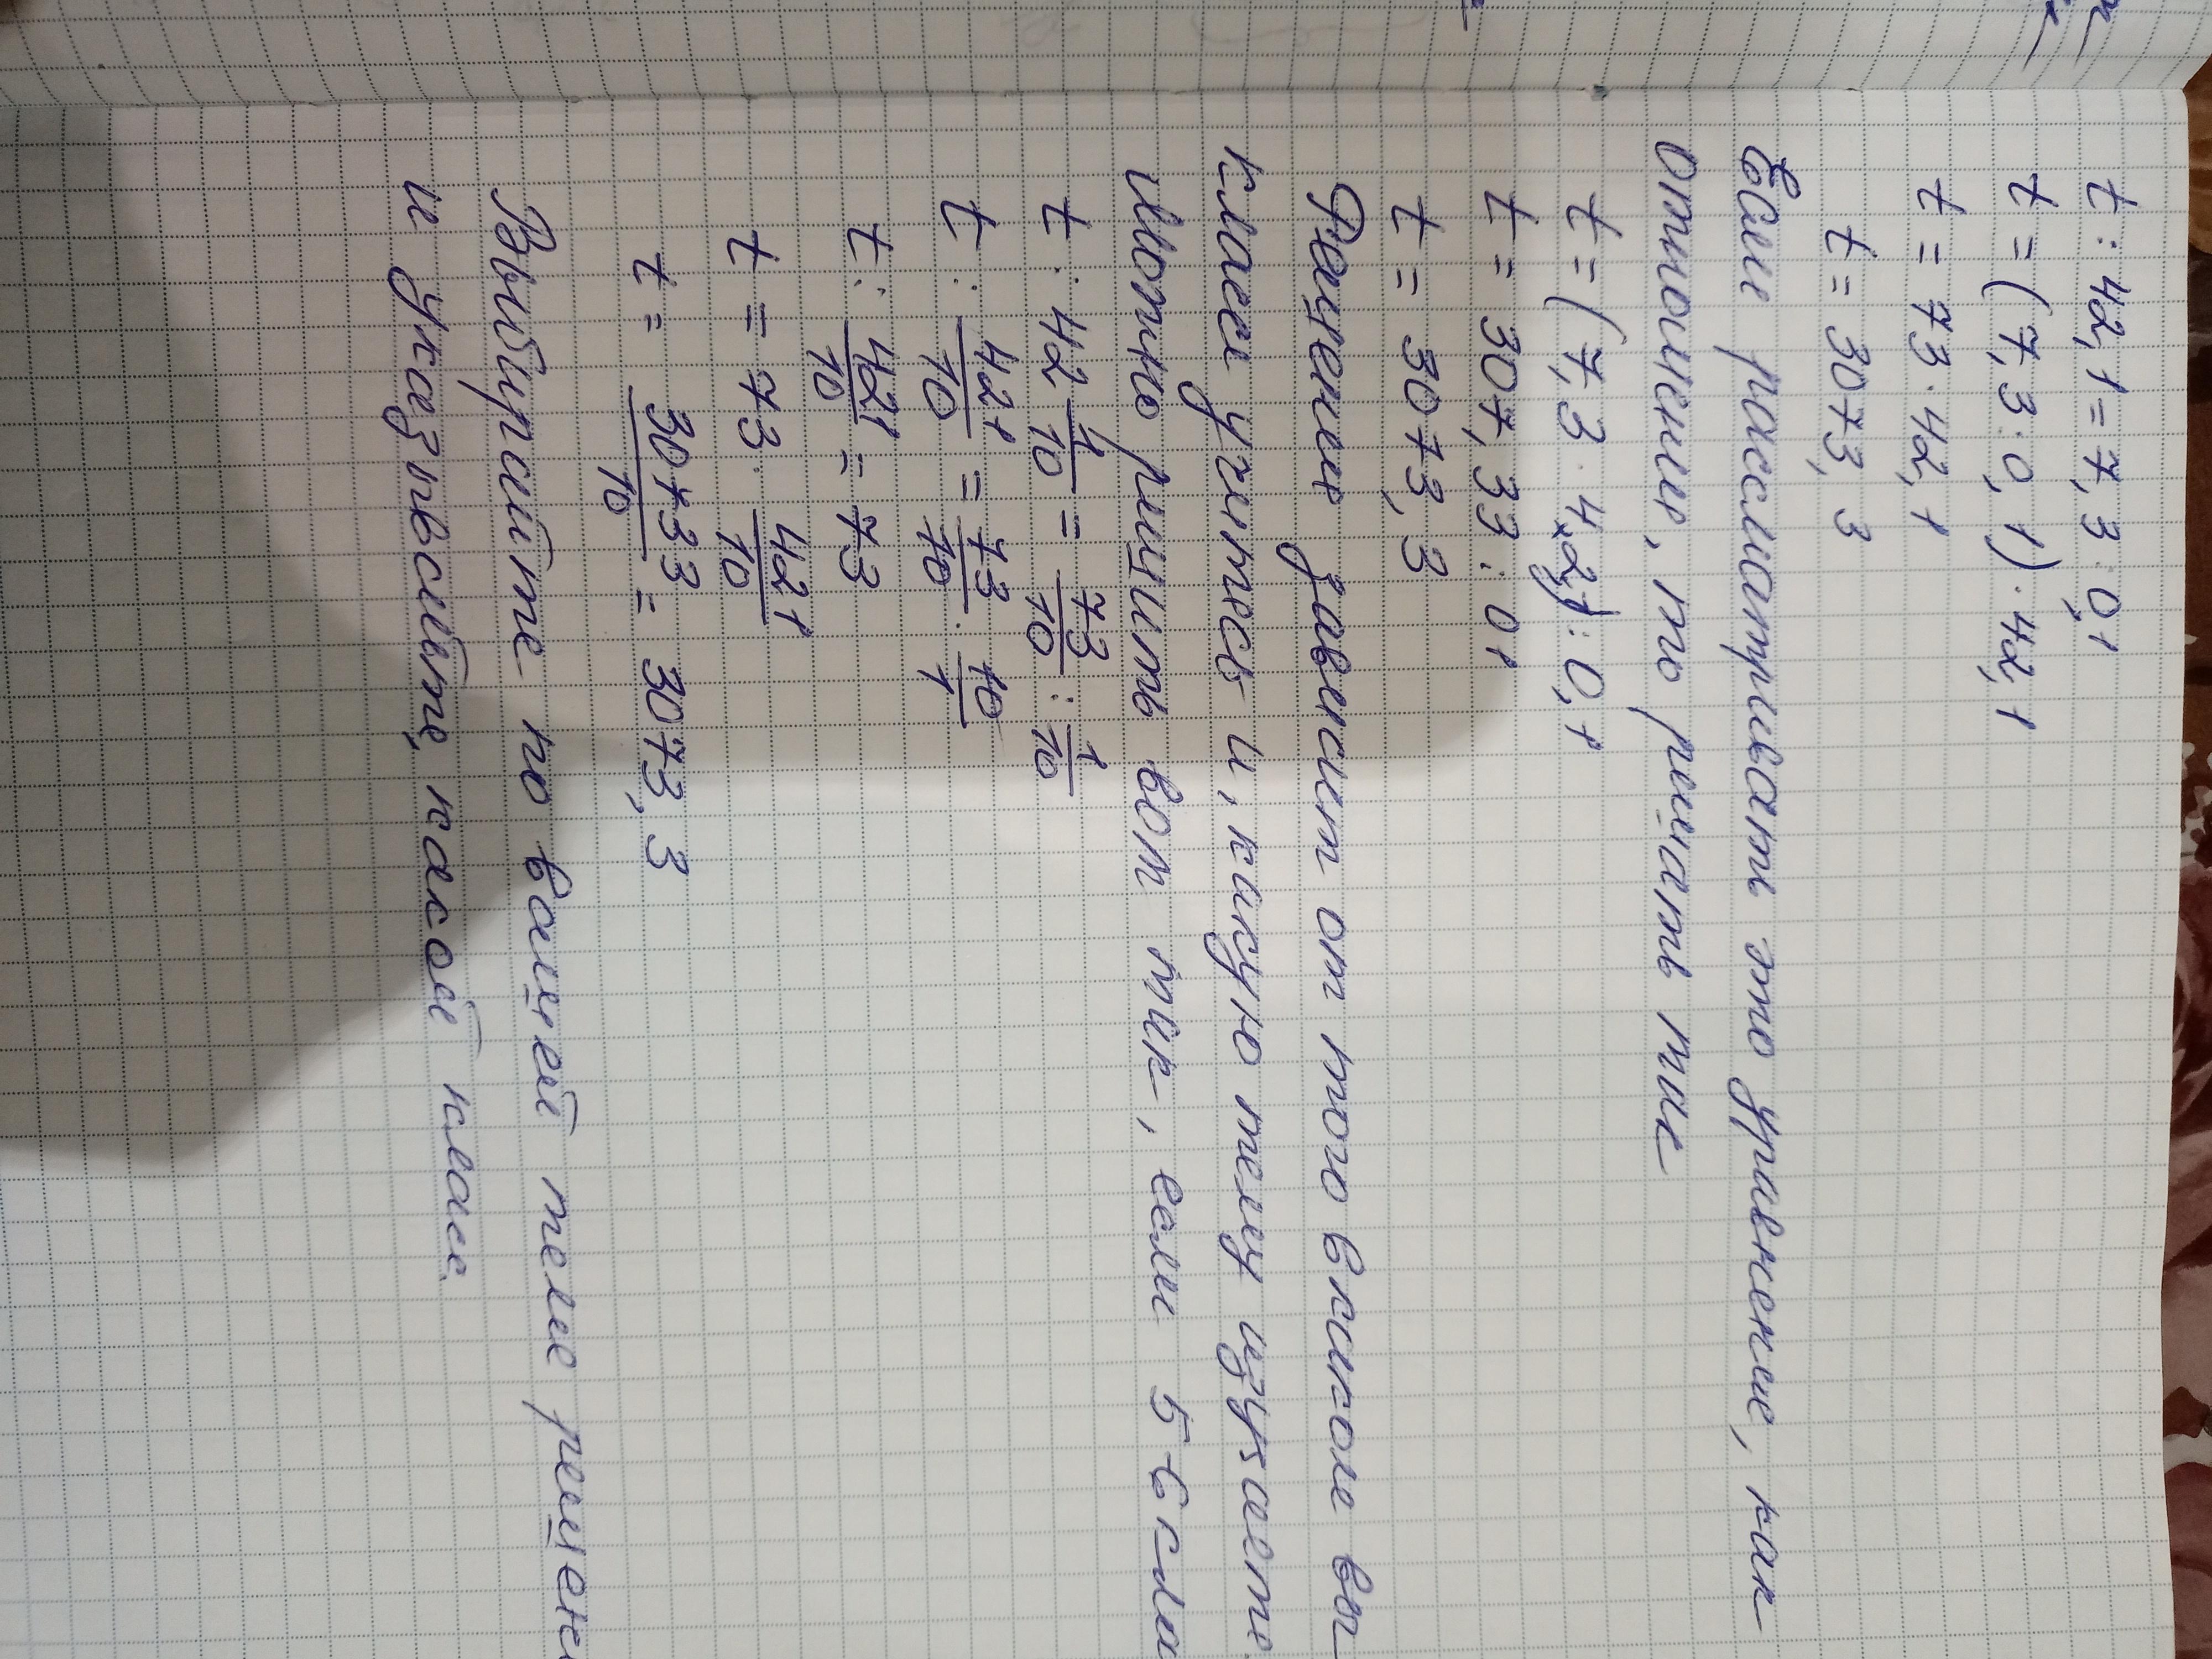 t : 42,1 = 7,3 : 0,1
t = (7,3 : 0,1) · 42,1
t = 73 · 42,1
t = 3073,3
Если рассматривать это уравнение, как
отношение, то решать так
t = (7,3 · 42,1) : 0,1
t = 307,33 : 0,1
t = 3073,3
Решение зависит от того в каком вы
классе учитесь и, какую тему изучаете
Можно решить вот так, если 5-6 кла
t : 42 1/10 = 73/10 : 1/10
t : 421/10 = 73/10 · 10/1
t : 421/10 = 73
t = 73 · 421/10
t = 30733/10 = 3073,3
Выбирайте по вашей теме решен
и указывайте, какой класс.